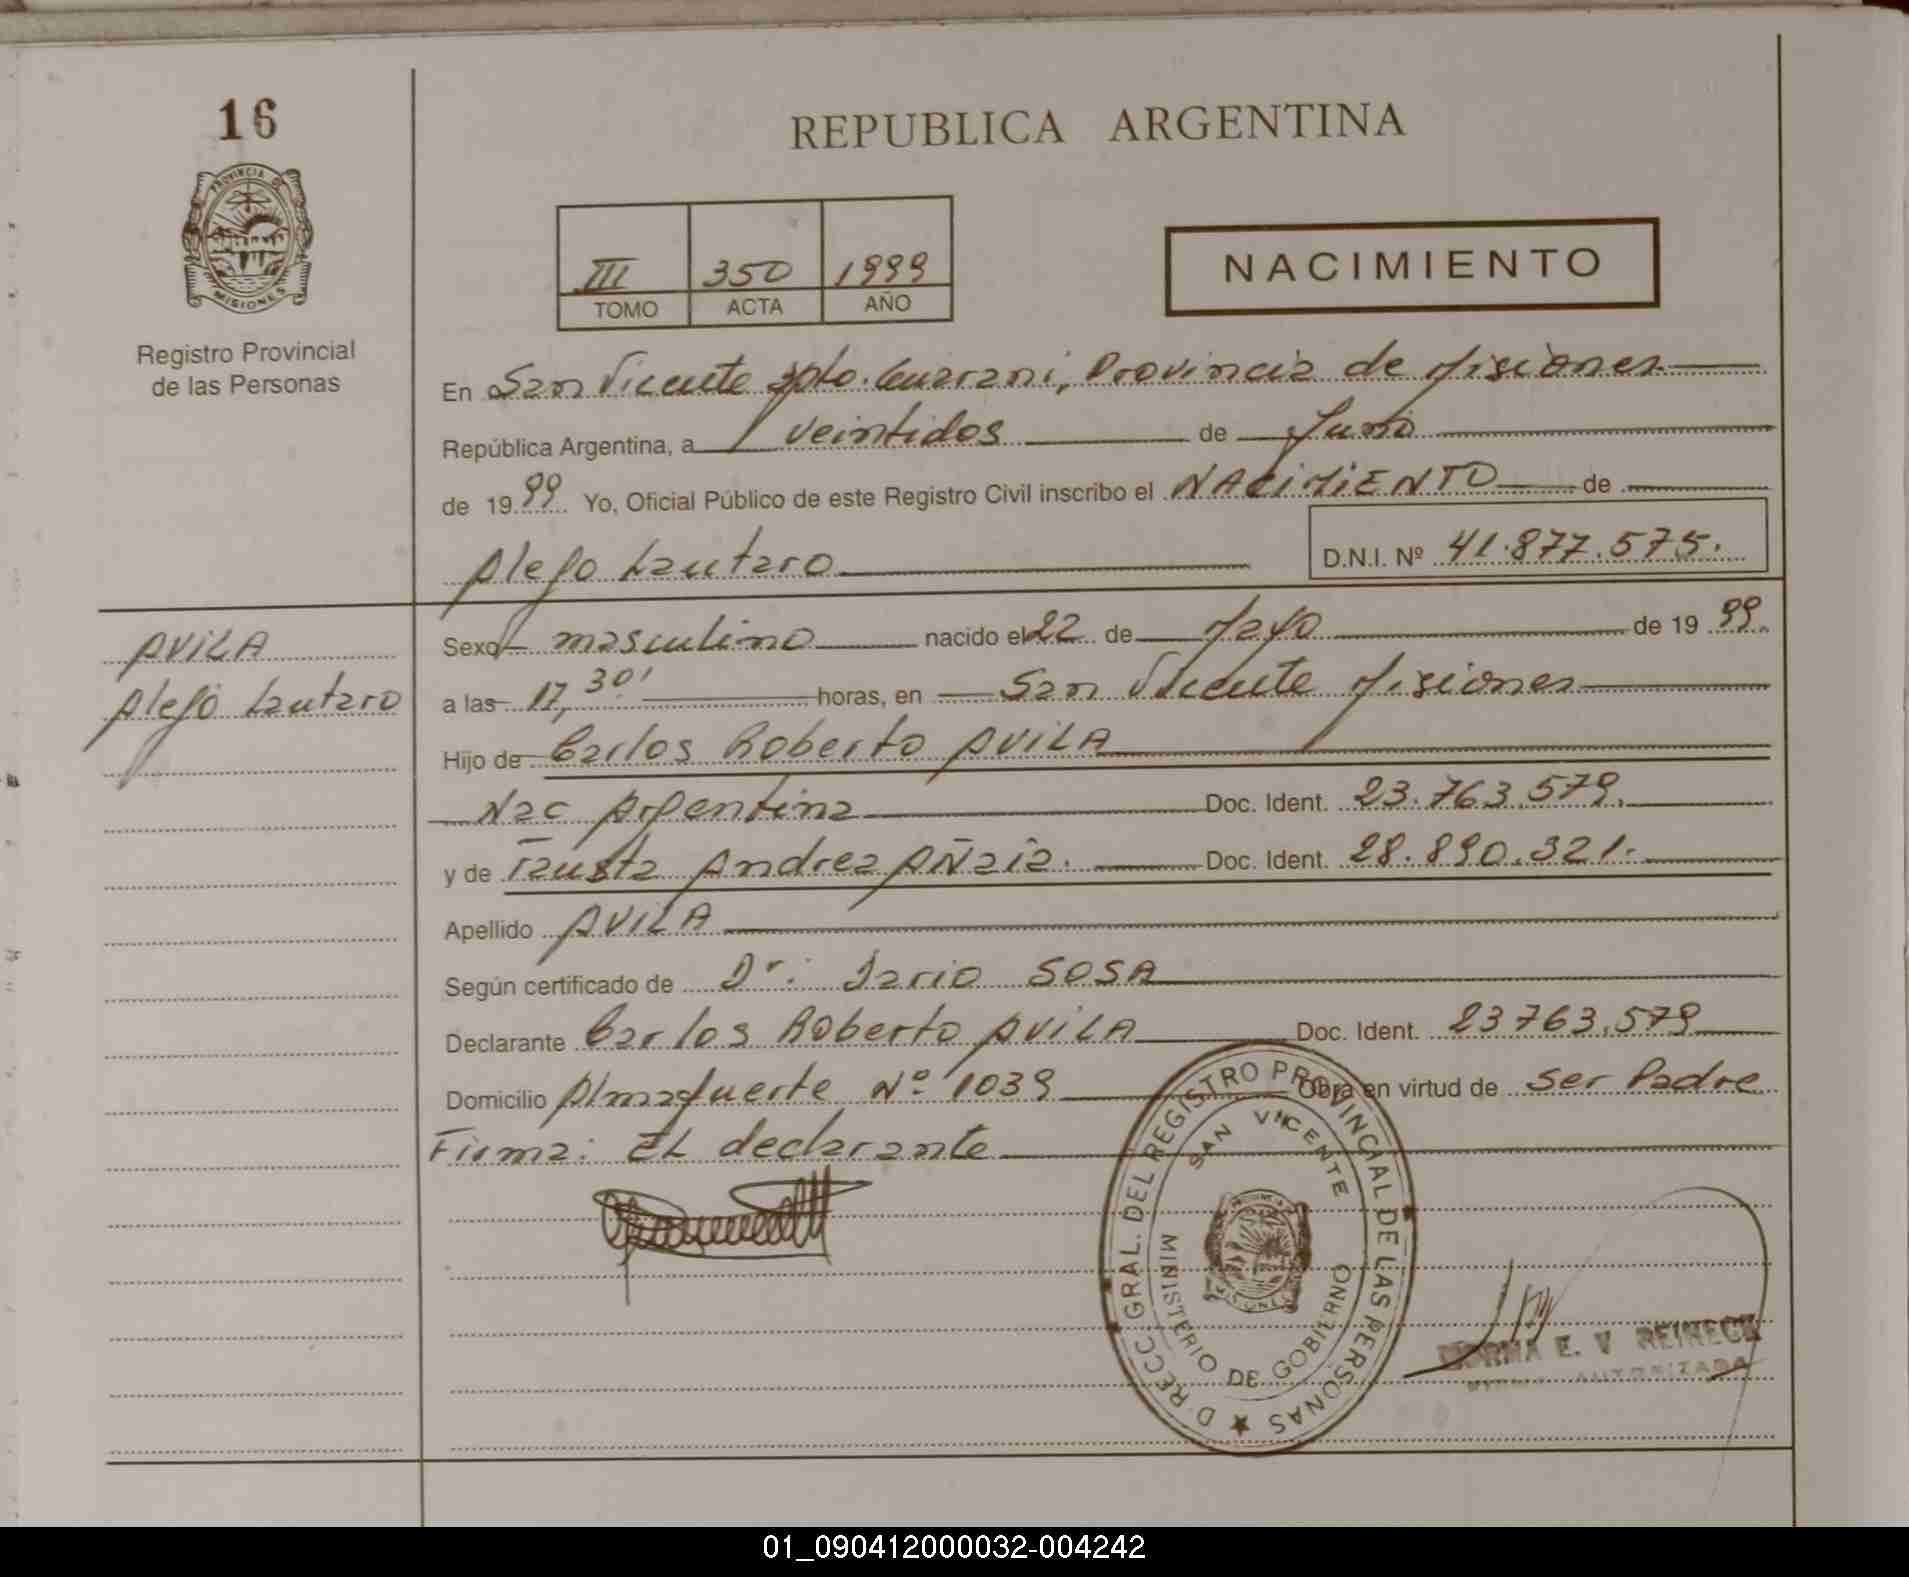 16
REPUBLICA ARGENTINA
PROVINCIA DE
MISIONES
Registro Provincial
de las Personas
III 350 1999
TOMO ACTA AÑO
NACIMIENTO
En San Vicente Dpto. Guarani, Provincia de Misiones
República Argentina, a veintidos de Junio
de 1999 Yo, Oficial Público de este Registro Civil inscribo el NACIMIENTO de
Alejo Lautaro D.N.I. Nº 41.877.575.
AVILA
Alejo Lautaro
Sexo masculino nacido el 22 de Mayo de 1999.
a las 17,30' horas, en San Vicente Misiones
Hijo de Carlos Roberto AVILA
Nac Argentina Doc. Ident. 23.763.579.
y de Fausta Andrea AÑaía. Doc. Ident. 28.890.321.
Apellido AVILA
Según certificado de Dr. Dario SOSA
Declarante Carlos Roberto AVILA Doc. Ident. 23763.579
Domicilio Almafuerte Nº 1039 Obra en virtud de Ser Padre
Firma: EL declarante
D RECC GRAL. DEL REGISTRO PROVINCIAL DE LAS PERSONAS
SAN VICENTE
MINISTERIO DE GOBIERNO
NORMA E. V REINECK
AUTORIZADA
01_090412000032-004242